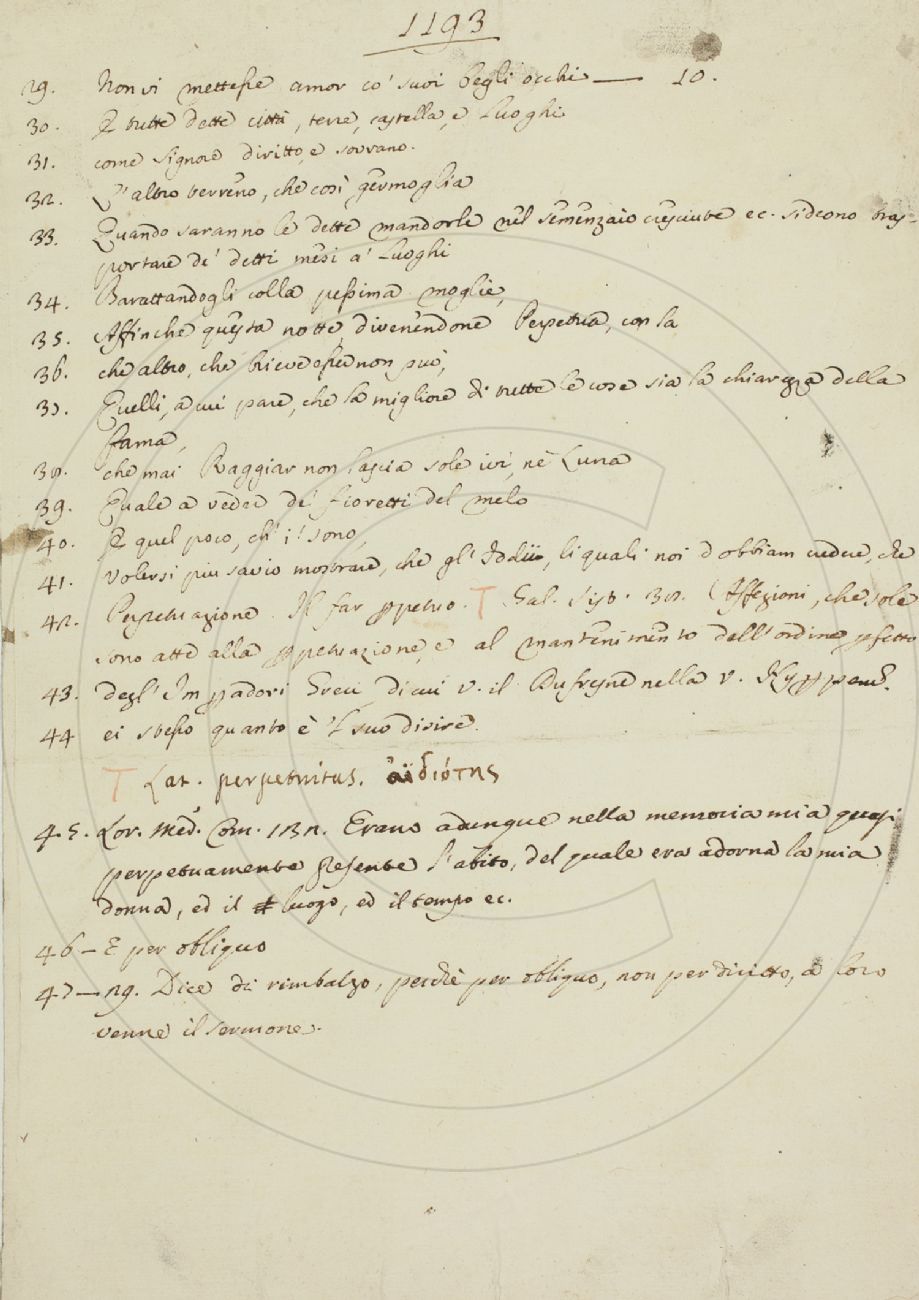 1193
29. Non vi mettesse amor co' suoi begli occhi — 10.
30. E tutte dette città, terre, castella, e Luoghi
31. come Signore diritto, e sovrano.
32. L'altro terreno, che così germoglia
33. Quando saranno le dette mandorle nel semenzaio cresciute ec. si deono tras-
portare de' detti mesi a' Luoghi
34. Barattandogli colla pessima moglie,
35. Affinche questa notte, divenendone Perpetua, con la
36. che altro, che brieve esser non può,
37. Quelli, a cui pare, che la migliore di tutte le cose sia la chiarezza della
fama,
38. che mai Raggiar non lascia sole ivi, nè Luna
39. Quale a veder de' fioretti del melo
40. E quel poco, ch' i' sono,
41. Volersi più savio mostrare, che gl' Iddii, li quali noi dobbiam creder, che
42. Perpetuazione. Il far ppetuo. T Gal. Sist. 38. (Affezioni, che sole
sono atte alla ppetuazione, e al mantenimento dell' ordine pfetto
43. degl' Impadori Greci di cui v. il Dufresne nella v.
44 ei stesso quanto è 'l suo divire.
T Lat. perpetuitas. ἀϊδιότης
45. Lor. Med. Com. 182. Erano adunque nella memoria mia quasi
perpetuamente presente l'abito, del quale era adorna la mia
donna, ed il luogo, ed il tempo ec.
46 — E per obliquo
47 — 29. Dice di rimbalzo, perchè per obliquo, non per diritto, a loro
venne il sermone.